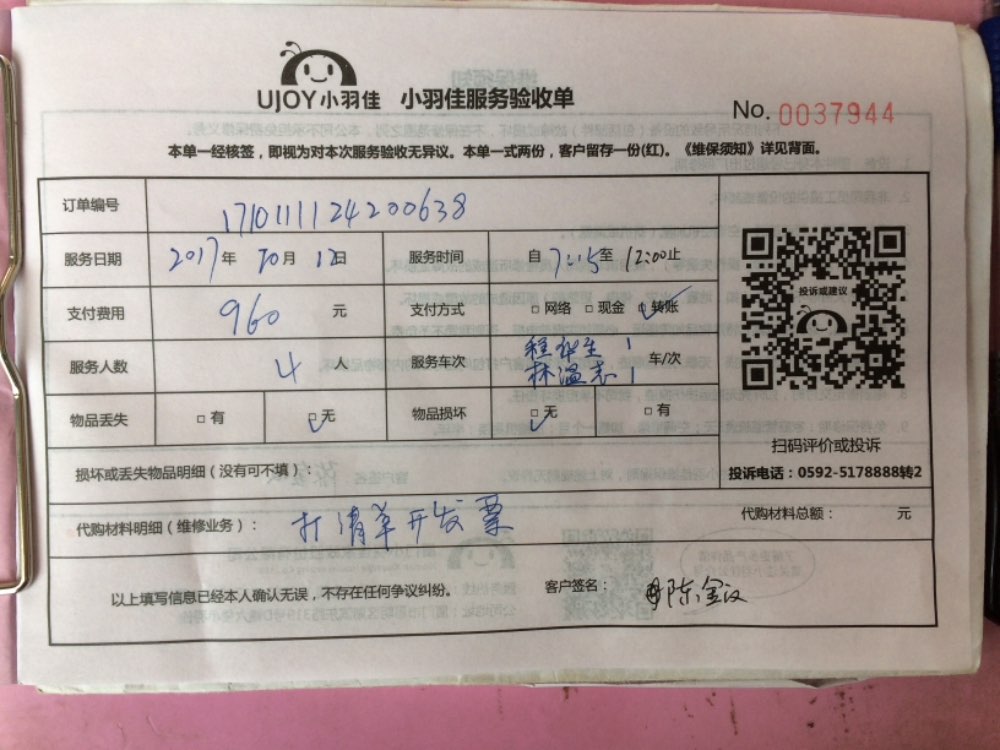 UJOY小羽佳 小羽佳服务验收单
No. 0037944
本单一经核签，即视为对本次服务验收无异议。本单一式两份，客户留存一份(红)。《维保须知》详见背面。
订单编号 1710111124200638
服务日期 2017年10月12日 服务时间 自7:15至12:00止
支付费用 960 元 支付方式 □网络 □现金 □转账
投诉或建议
服务人数 4 人 服务车次 程华生 1 林温志 1 车/次
物品丢失 □有 □无 物品损坏 □无 □有
扫码评价或投诉
损坏或丢失物品明细（没有可不填）：
投诉电话：0592-5178888转2
代购材料明细（维修业务）： 打清单开发票 代购材料总额： 元
以上填写信息已经本人确认无误，不存在任何争议纠纷。 客户签名： 陈金议